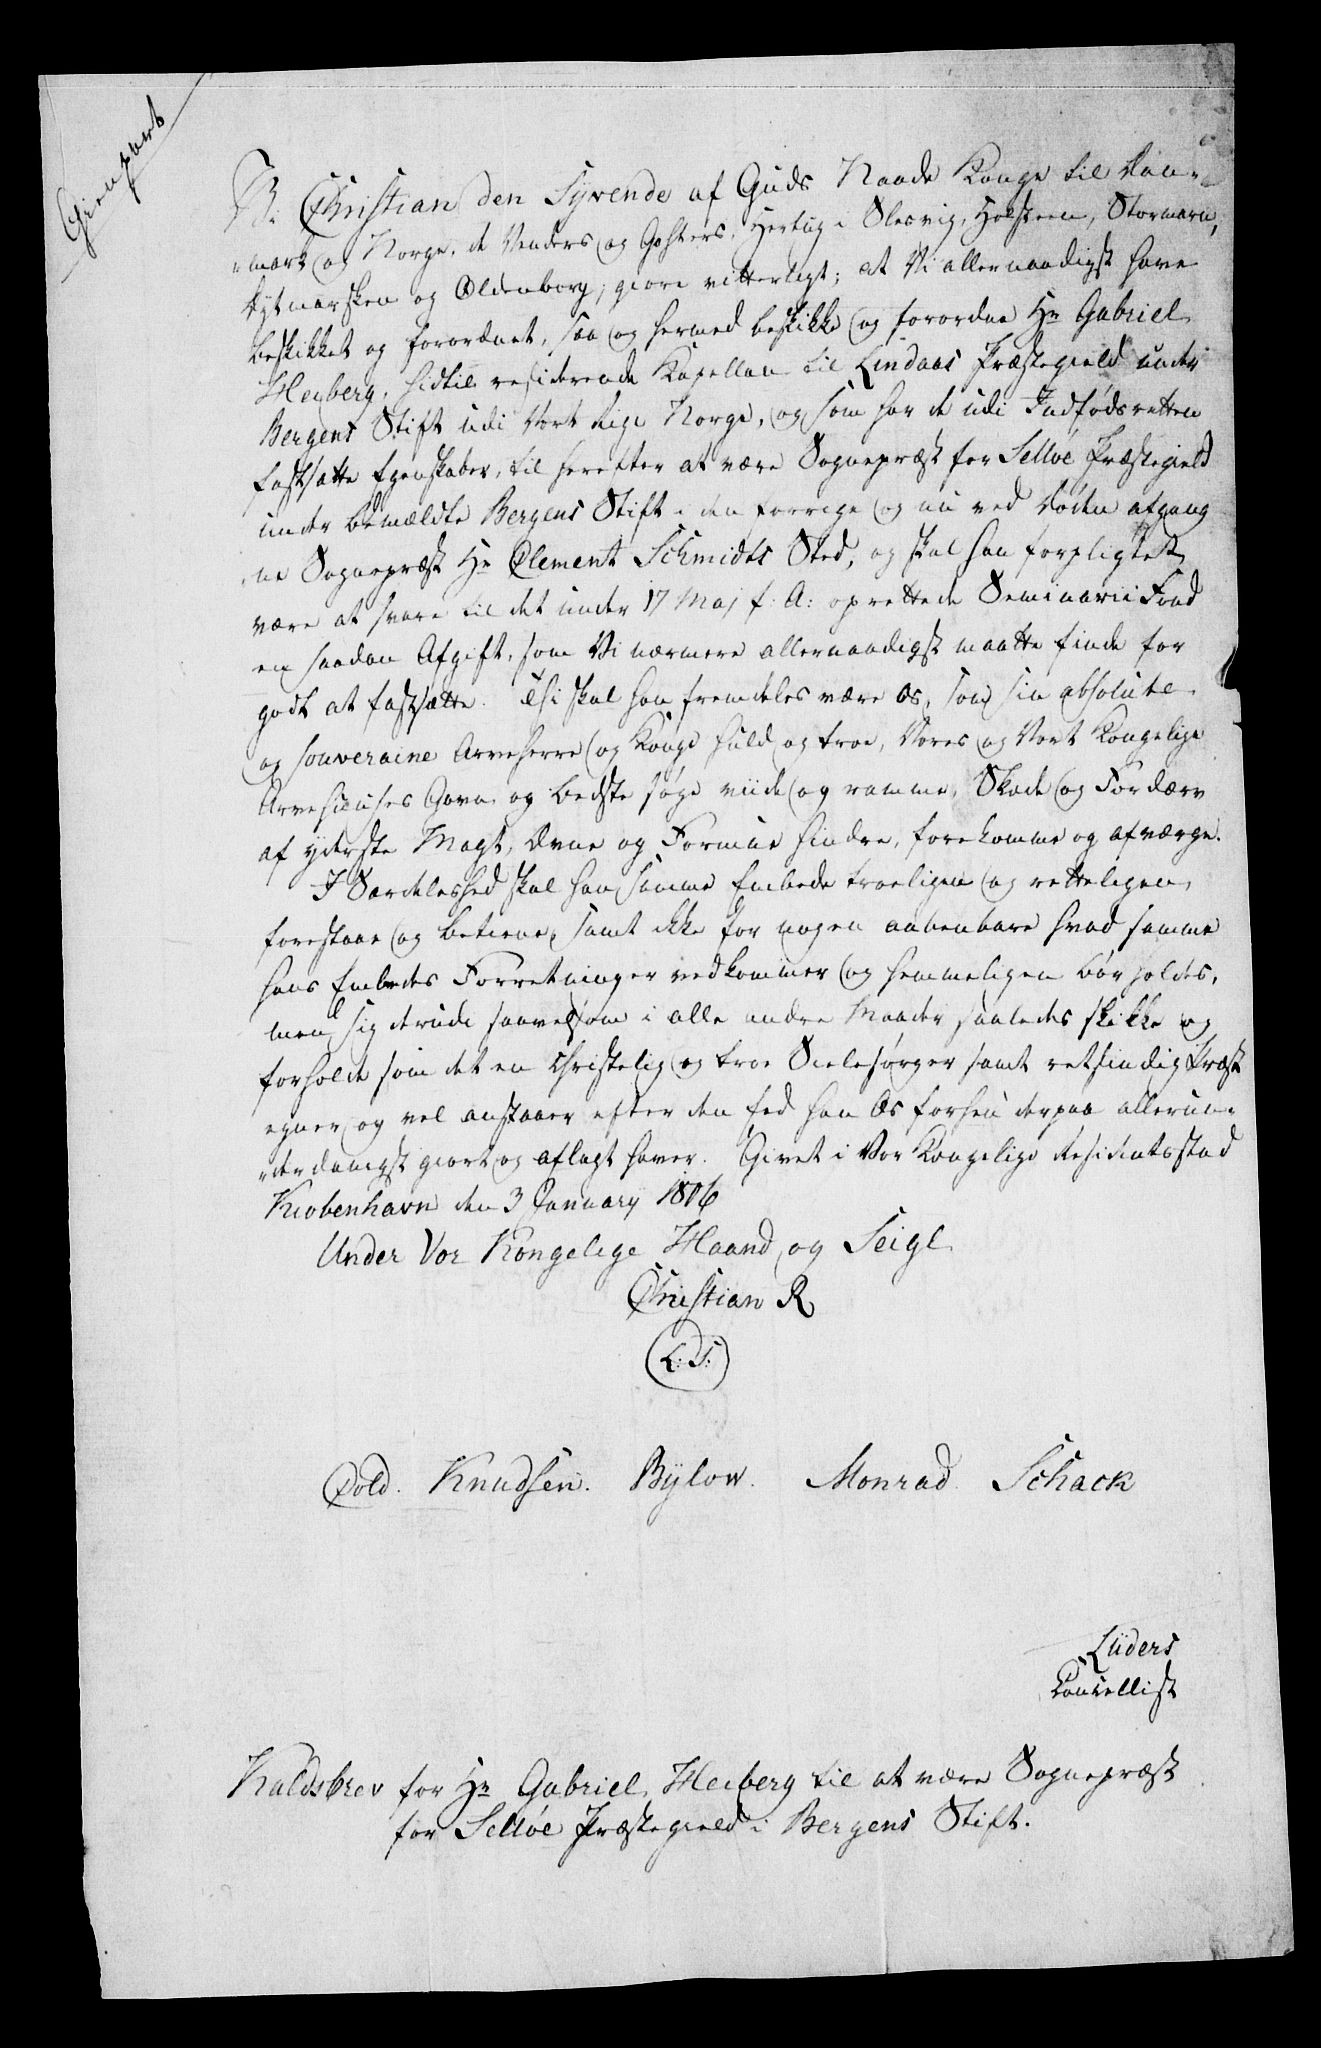 Gienpart
Vi Christian den Syvende af Guds Naade Konge til Dan-
-mark og Norge, de Venders og Gothers, Hertug i Slesvig, Holsteen, Stormarn,
Dytmarsken og Oldenborg; giøre vitterligt; at Vi allernaadigst have
beskikket og forordnet, saa og hermed beskikke og forordne Hr Gabriel
Heiberg, hidtil residerende Kapellan til Lindaas Præstegield under
Bergens Stift udi Vort Rige Norge, og som har de udi Indfødsretten
fastsatte Egenskaber, til herefter at være Sognepræst for Selløe Præstegield
under bemældte Bergens Stift i den forrige og nu ved Døden afgang
ne Sognepræst Hr Clement Schmidts Sted, og skal han forpligtet
være at svare til det under 17 Maj f: A: oprettede Seminarii Fond
en saadan Afgift, som Vi nærmere allernaadigst maatte finde for
godt at fastsætte. Thi skal han fremdeles være Os, som sin absolute
og souveraine Arveherre og Konge huld og troe, Vores og Vort Kongelige
Arvehuuses Gavn og bedste søge viide og ramme, Skade og Fordærv
af yderste Magt, Evne og Formue hindre, forekomme og afværge.
I Særdeleshed skal han samme Embede troeligen og retteligen
forestaae og betiene, samt ikke for nogen aabenbare hvad samme
hans Embedes Forretninger vedkommer og hemmeligen bør holdes,
men sig derudi saavelsom i alle andre Maader saaledes skikke og
forholde som det en christelig og troe Sielesørger samt retsindig Præst
egner og vel anstaaer efter den Eed han Os forhen derpaa allerun-
-derdanigst giort og aflagt haver. Givet i Vor Kongelige Residentsstad
Kiøbenhavn den 3 January 1806
Under Vor Kongelige Haand og Seigl
Christian R
L: S:
Cold. Knudsen. Bylow. Monrad. Schack
Lüders
Cancellist
Kaldsbrev for Hr Gabriel Heiberg til at være Sognepræst
for Selløe Præstegield i Bergens Stift.